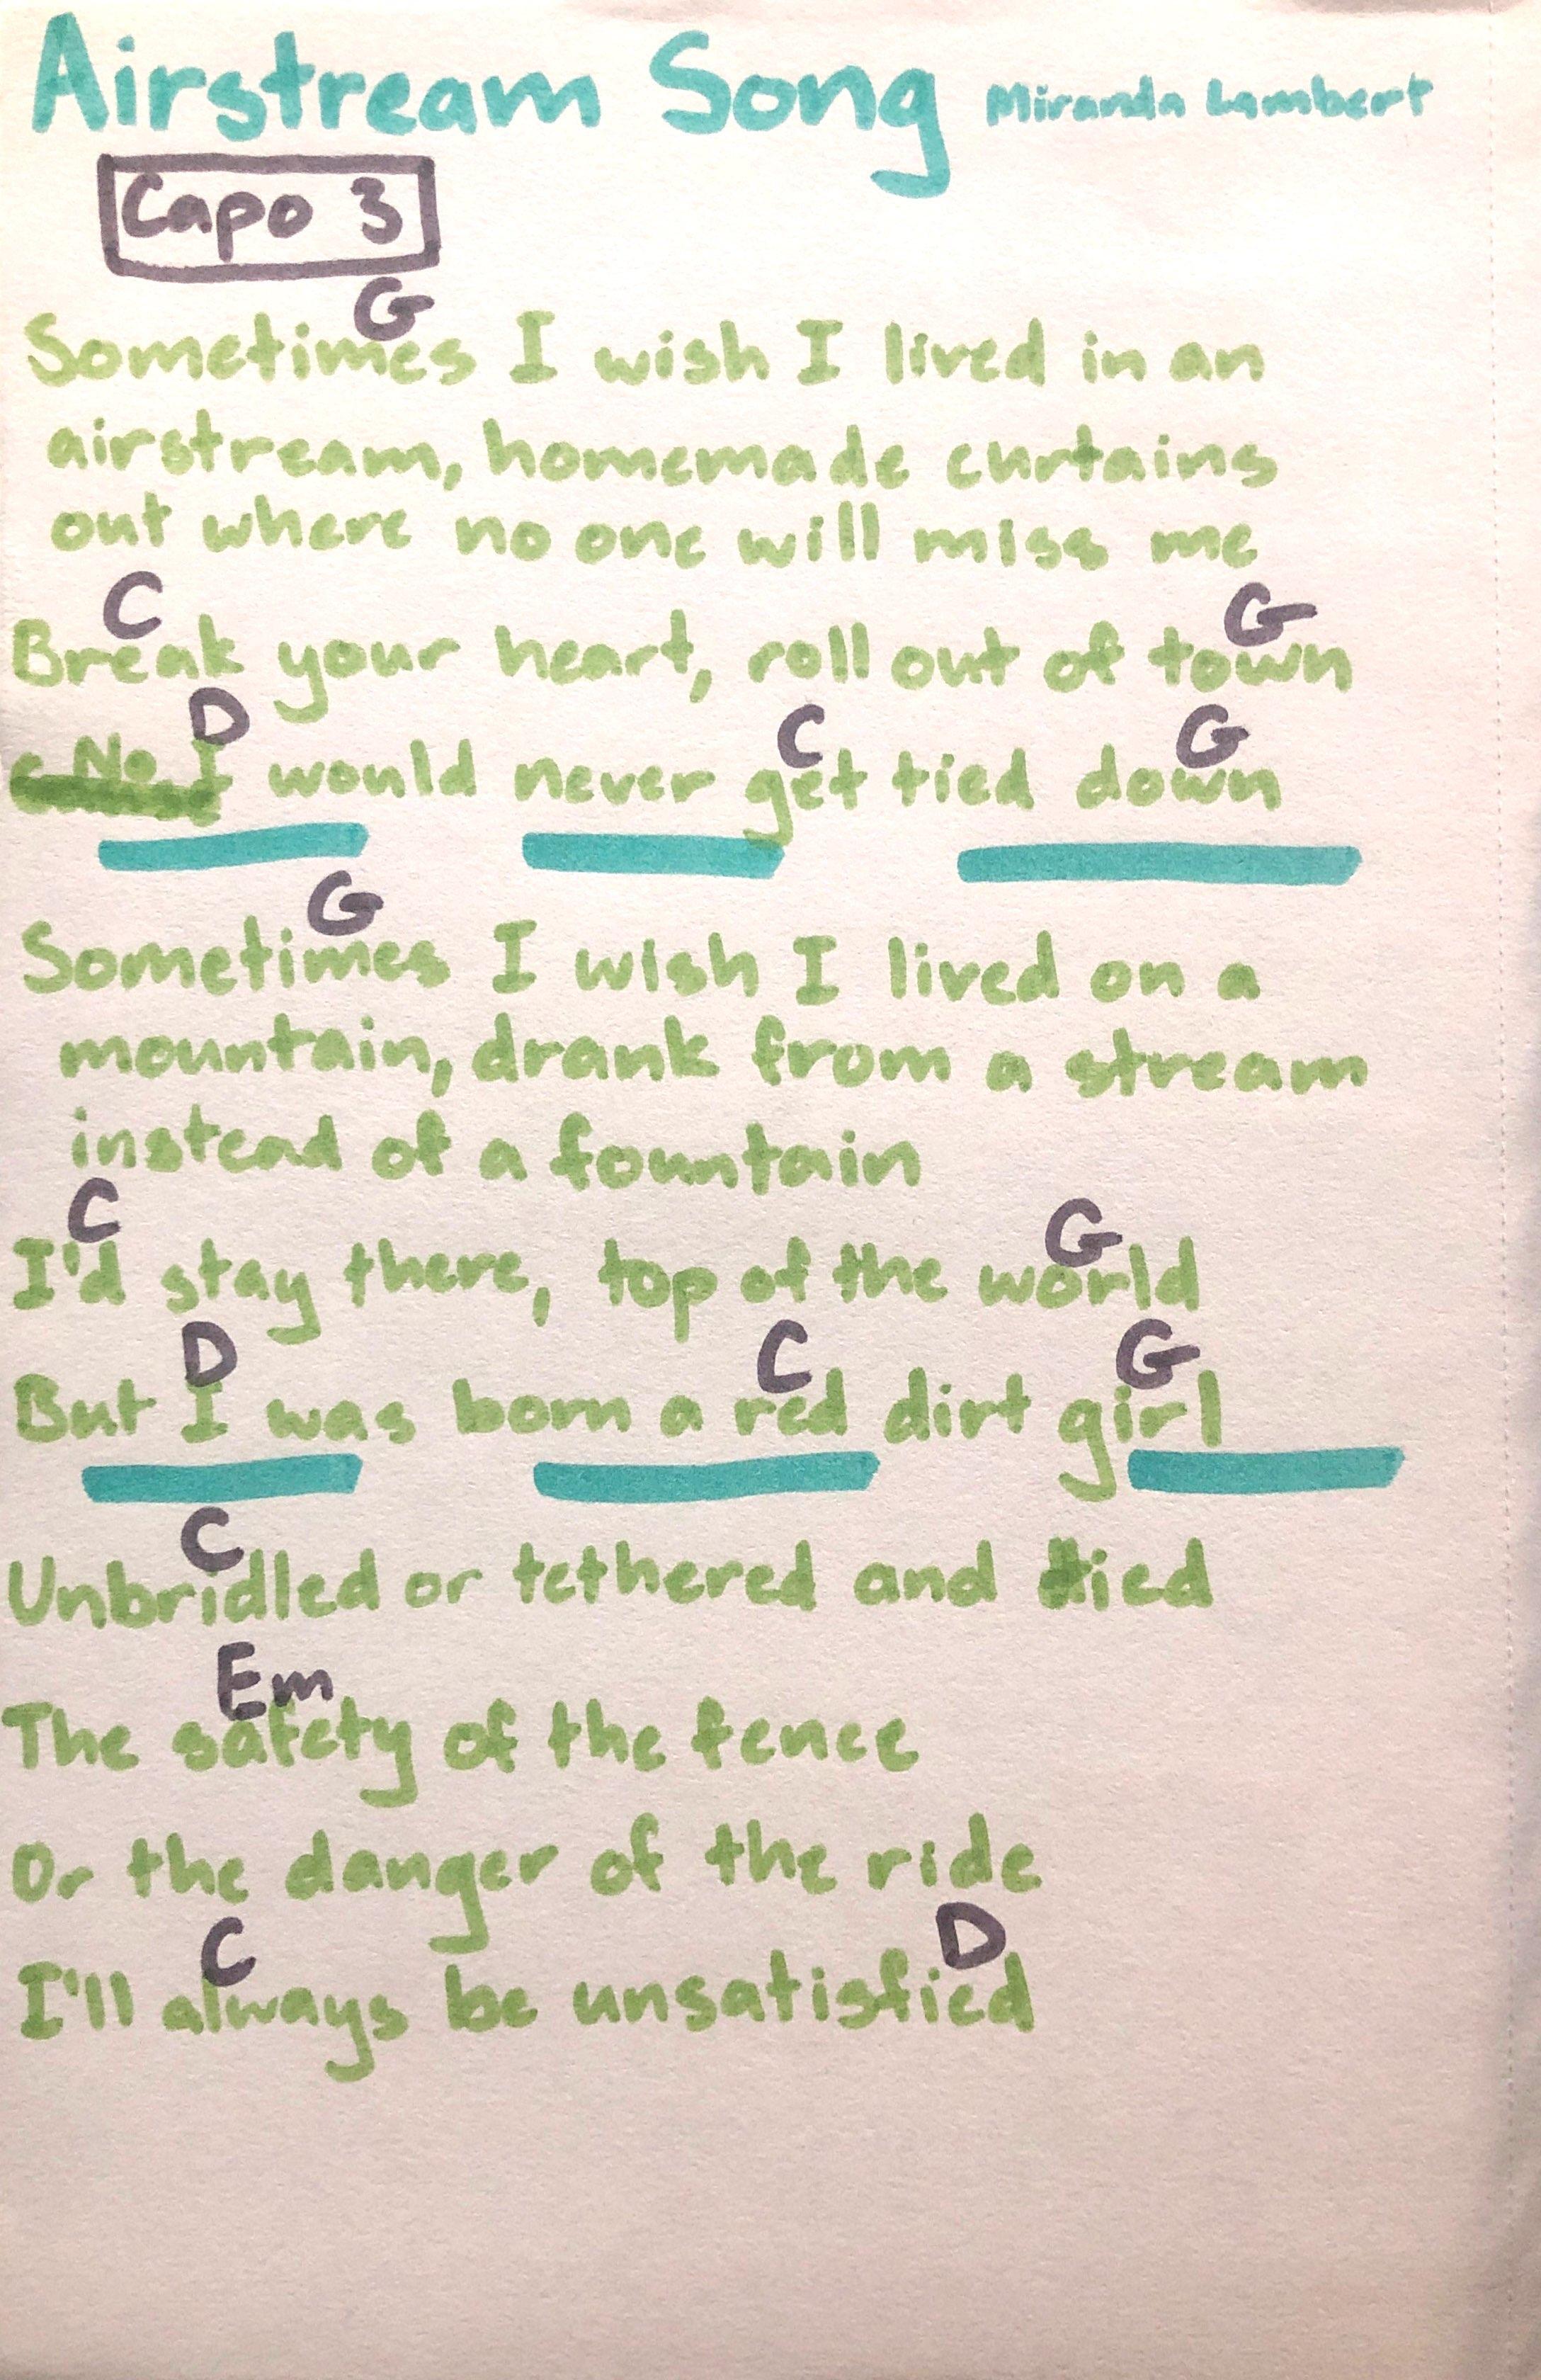 Airstream Song Miranda Lambert
Capo 3
G
Sometimes I wish I lived in an
airstream, homemade curtains
out where no one will miss me
C G
Break your heart, roll out of town
D C G
No I would never get tied down
G
Sometimes I wish I lived on a
mountain, drank from a stream
instead of a fountain
C G
I'd stay there, top of the world
D C G
But I was born a red dirt girl
C
Unbridled or tethered and tied
Em
The safety of the fence
Or the danger of the ride
C D
I'll always be unsatisfied